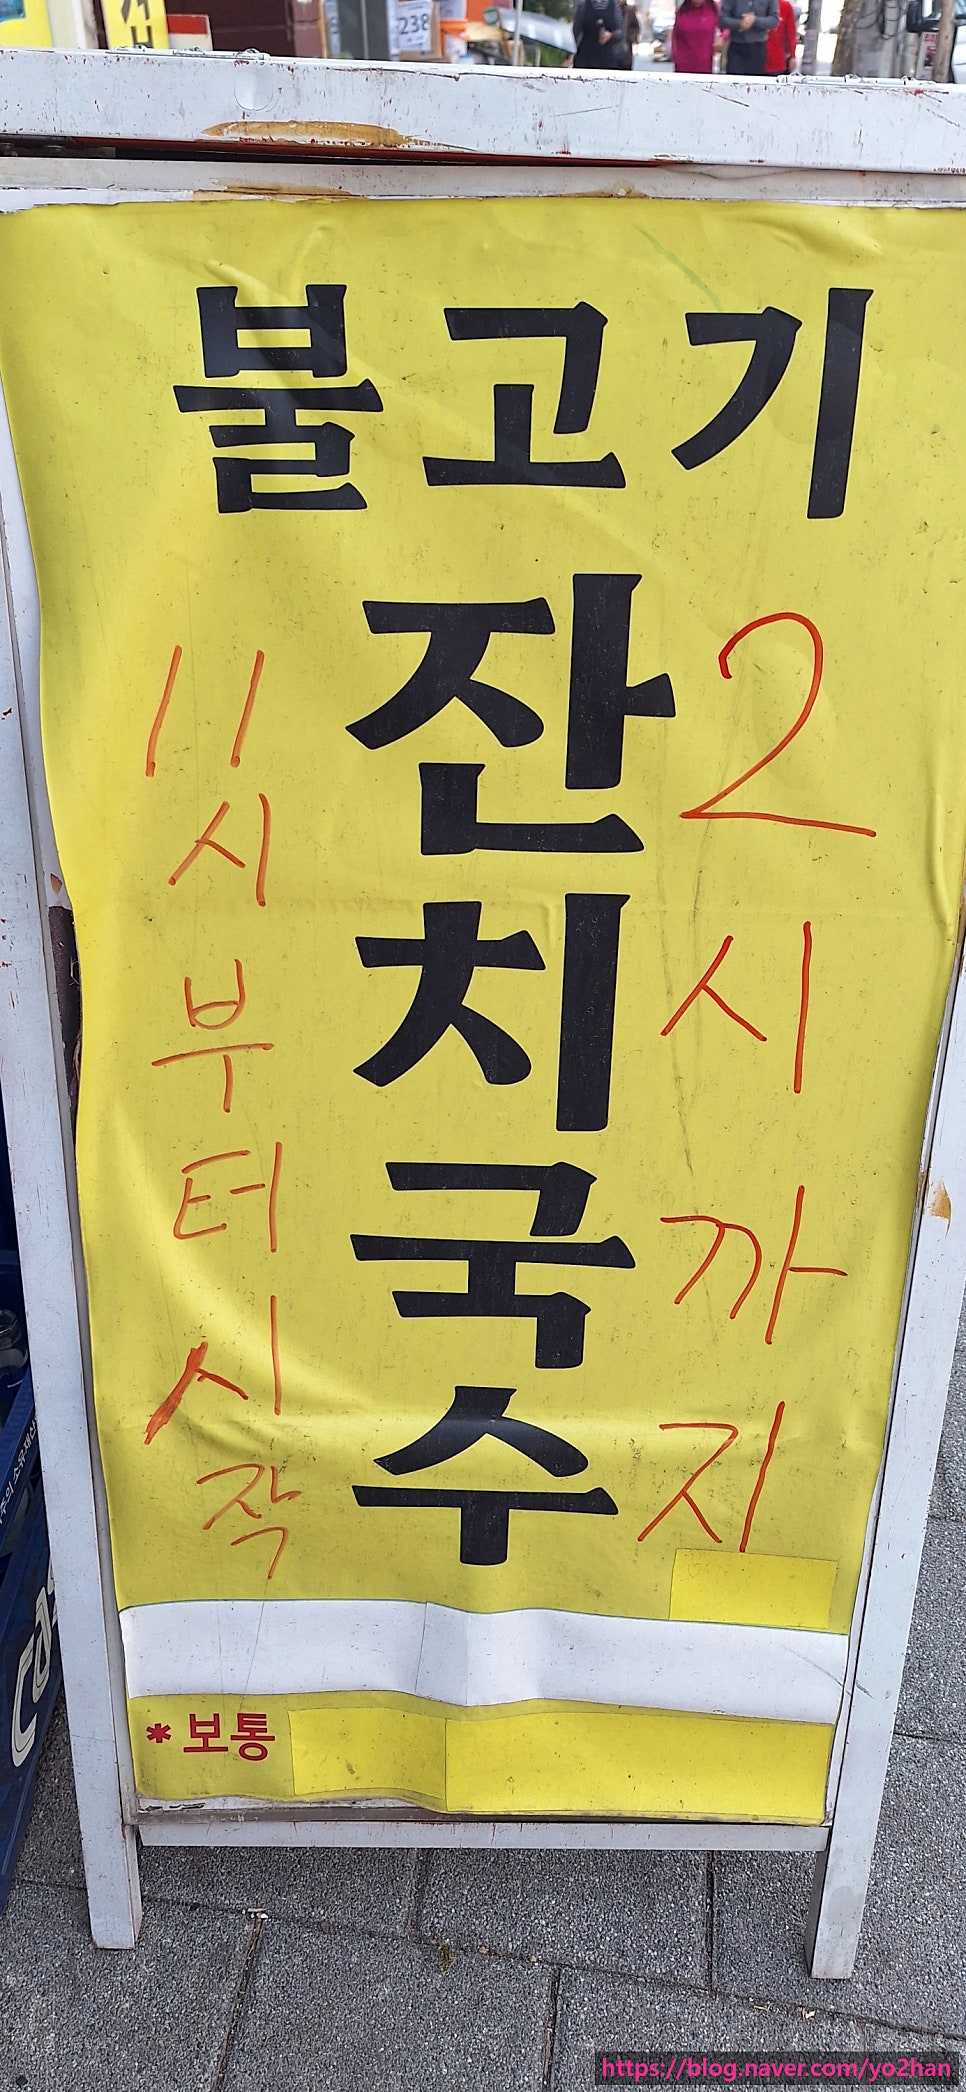 238
불고기
잔치국수
11시부터시작
2시까지
* 보통
https://blog.naver.com/yo2han